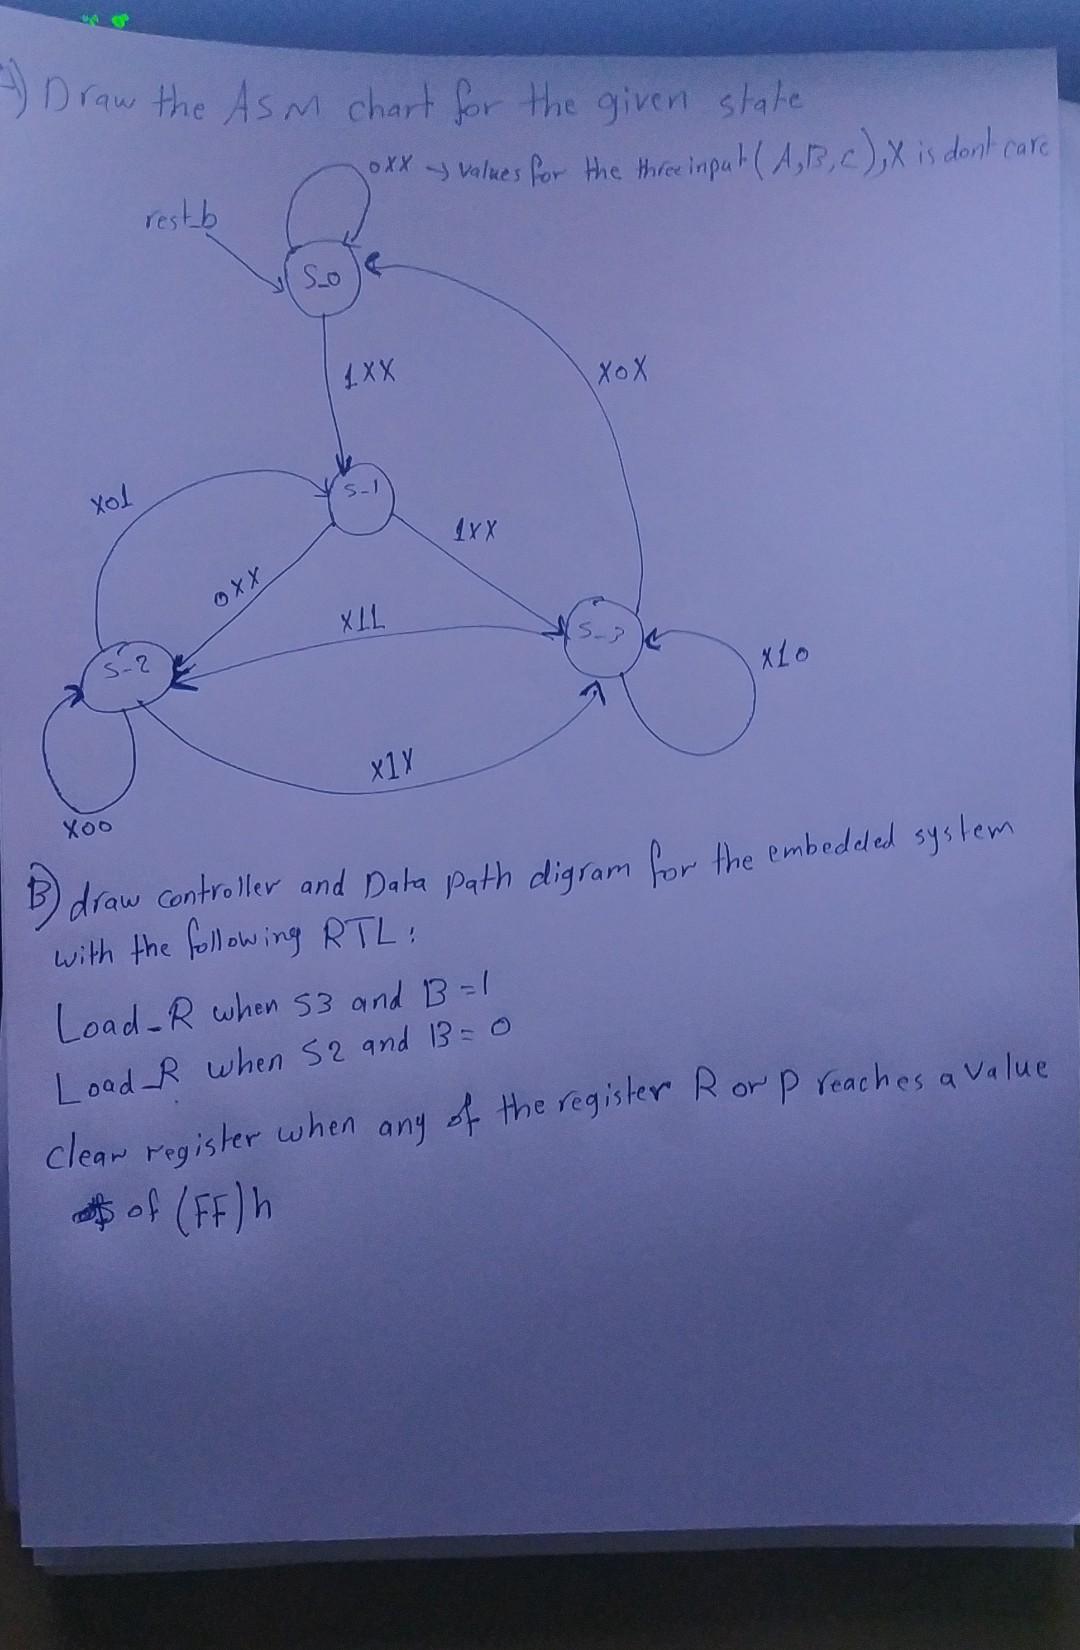 Draw the ASM chart for the given state
0XX → values for the three input (A,B,C), X is dont care
rest_b
S_0
1XX
X0X
X01
S-1
1XX
0XX
X11
S-2
X10
X1X
X00
B) draw controller and Data path digram for the embedded system
with the following RTL:
Load_R when S3 and B=1
Load_R when S2 and B=0
clear register when any of the register R or P reaches a value
of (FF)h